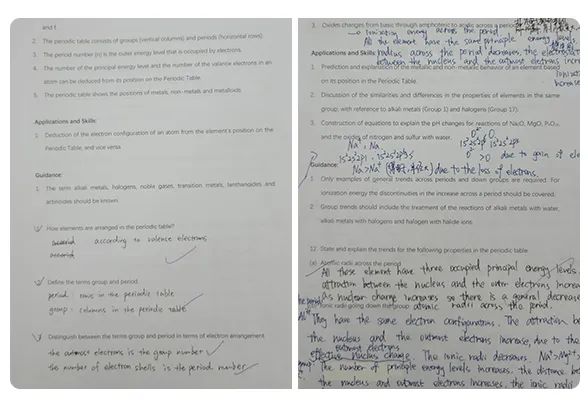 and f.
2. The periodic table consists of groups (vertical columns) and periods (horizontal rows)
3. The period number (n) is the outer energy level that is occupied by electrons.
4. The number of the principal energy level and the number of the valence electrons in an
atom can be deduced from its position on the Periodic Table.
5. The periodic table shows the positions of metals, non-metals and metalloids
Applications and Skills:
1. Deduction of the electron configuration of an atom from the element's position on the
Periodic Table, and vice versa
Guidance:
1. The term alkali metals, halogens, noble gases, transition metals, lanthanoides and
actinoides should be known
How elements are arranged in the periodic table?
according to valence electrons
Define the terms group and period.
period : rows in the periodic table
group : columns in the periodic table
Distinguish between the terms group and period in terms of electron arrangement
the outmost electrons is the group number
the number of electron shells is the period number
3. Oxides changes from basic through amphoteric to acidic across a period
Ionization energy across the period
All the element have the same principle energy levels
Applications and Skills: radius across the period decreases, the electrostatic
between the nucleus and the outmost electrons incre
1. Prediction and explanation of the metallic and non-metallic behavior of an element based
on its position in the Periodic Table.
increase
2. Discussion of the similarities and differences in the properties of elements in the same
group, with reference to alkali metals (Group 1) and halogens (Group 17).
3. Construction of equations to explain the pH changes for reactions of Na₂O, MgO, P₄O₁₀,
and the oxides of nitrogen and sulfur with water.
Na⁺, Na
due to gain of ele
Guidance:
Na > Na⁺ due to the loss of electrons.
1. Only examples of general trends across periods and down groups are required. For
ionization energy the discontinuities in the increase across a period should be covered.
2. Group trends should include the treatment of the reactions of alkali metals with water,
alkali metals with halogens and halogens with halide ions.
12. State and explain the trends for the following properties in the periodic table.
(a) Atomic radii across the period
All these element have three occupied principal energy levels
attraction between the nucleus and the outer electrons increa
As nuclear charge increases so there is a general decrease
Ionic radii going down the group atomic radii across the period.
They have the same electron configurations. The attraction be
the nucleus and outmost electrons increase, due to the
effective nucleus charge. The ionic radii decreases.
The number of principle energy levels increases, the distance be
the nucleus and outmost electrons increases, the ionic radii